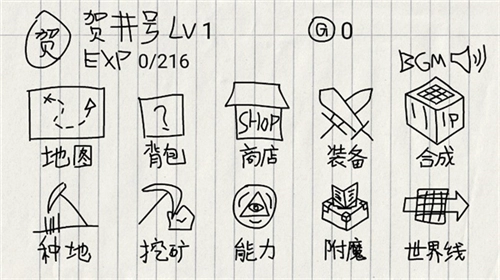 贺 贺井号 LV 1
G 0
EXP 0/216
BGM
?
SHOP
IP
地图 背包 商店 装备 合成
种地 挖矿 能力 附魔 世界线